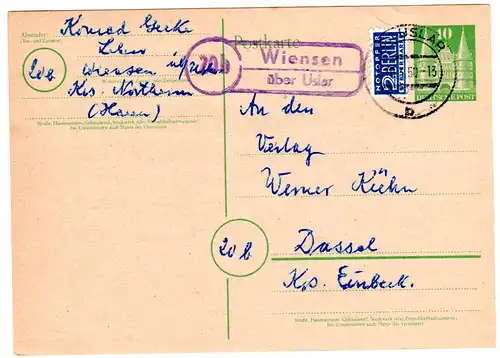 Absender:
Konrad
Lehrer
20b Wiensen über
Krs. Northeim
(Hann)
Straße, Hausnummer, Gebäudeteil, Stockwerk oder Postschließfachnummer;
bei Untermietern auch Name des Vermieters
Postkarte
20b
Wiensen
über Uslar
NOTOPFER
2 BERLIN
STEUERMARKE
USLAR
b
10
DEUTSCHE POST
An den
Verlag
Werner
20b
Dassel
Krs. Einbeck.
Straße, Hausnummer, Gebäudeteil, Stockwerk oder Postschließfachnummer;
bei Untermietern auch Name des Vermieters